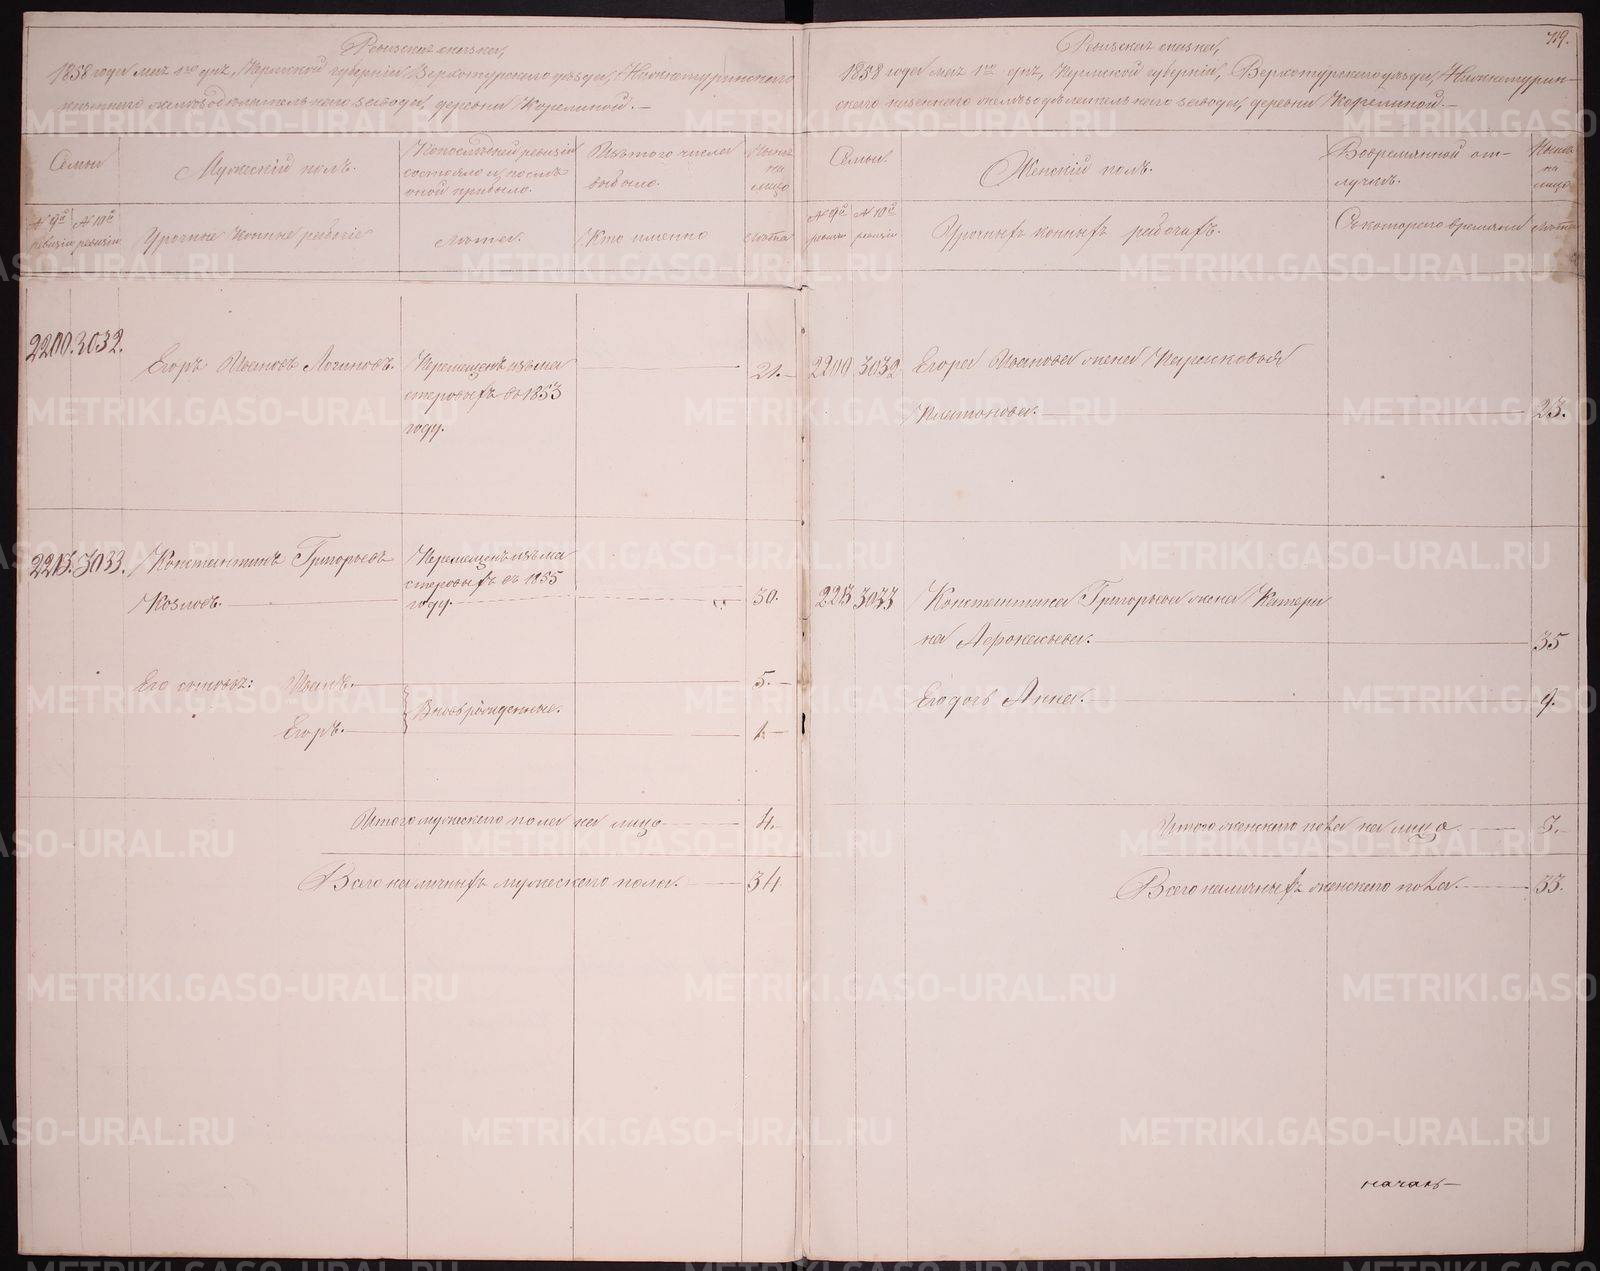 719.
Ревизская сказка,
1858 года мая 1го дня, Пермской губернии, Верхотурского уезда, Нижнетуринского
казенного железоделательного завода, деревни Корелиной.—
Семьи
Мужескій полъ.
По последней ревизіи
состояло и после
оной прибыло.
Изъ того числа
выбыло.
Ныне
на
лицо
№ 9й
ревизіи
№ 10й
ревизіи
Урочные Конные рабочіе
Лета.
Кто именно
Лета
2200. 3032.
Егоръ Ивановъ Логиновъ.
Перемещенъ изъ ма
стеровыхъ въ 1853
году.
21.—
2213. 3033.
Константинъ Григорьевъ
Козловъ.
Перемещенъ изъ ма
стеровыхъ въ 1855
году.
30.
Его сыновья: Иванъ.
5.—
Вновь рожденные.
Егоръ.
1.—
Итого мужеского пола на лицо
4.
Всего наличныхъ мужеского пола.
34
Ревизская сказка,
1858 года мая 1го дня, Пермской губерніи, Верхотурского уезда, Нижнетурин-
ского казенного железоделательного завода, деревни Корелиной.—
Семьи.
Женскій полъ.
Во временной от-
лучке.
Ныне
на
лицо
№ 9й
ревизіи
№ 10й
ревизіи
Урочныхъ конныхъ рабочихъ.
Съ которого времяни
Лета
2200 3032
Егора Иванова жена
Платонова.
23.
2213 3033
Константина Григорьева жена Катери
на Афонасьева.
35
Его дочь Анна.
9.
Итого женского пола на лицо
3.
Всего наличныхъ женского пола.
33.
METRIKI.GASO-URAL.RU